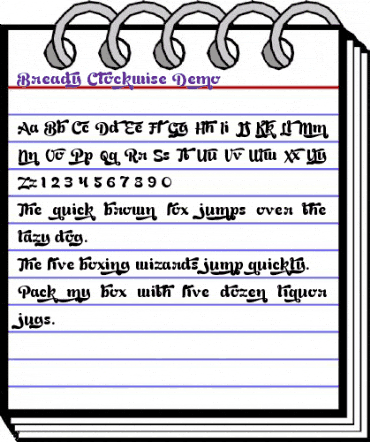 Bready Clockwise Demo
Aa Bb Cc Dd Ee Ff Gg Hh Ii Jj Kk Ll Mm
Nn Oo Pp Qq Rr Ss Tt Uu Vv Ww Xx Yy
Zz 1 2 3 4 5 6 7 8 9 0
The quick brown fox jumps over the
lazy dog.
The five boxing wizards jump quickly.
Pack my box with five dozen liquor
jugs.